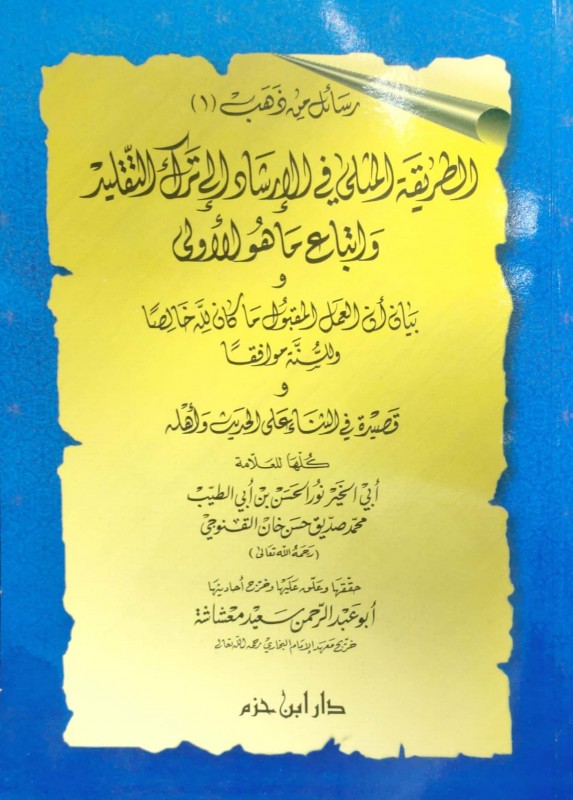 رسائل من ذهب (١)
الطريقة المثلى في الإرشاد إلى ترك التقليد
واتباع ما هو الأولى
و
بيان أن العمل المقبول ما كان لله خالصًا
وللسنة موافقًا
و
قصيدة في الثناء على الحديث وأهله
كلها للعلامة
أبي الخير نور الحسن بن أبي الطيب
محمد صديق حسن خان القنوجي
(رحمه الله تعالى)
حققها وعلق عليها وخرج أحاديثها
أبو عبد الرحمن سعيد معشاشة
خريج معهد الإمام البخاري رحمه الله تعالى
دار ابن حزم